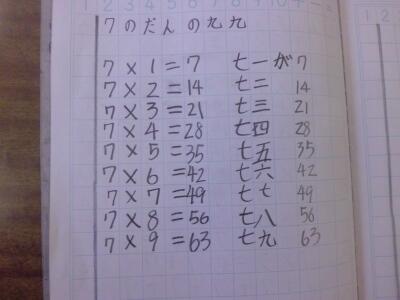 1 2 3 4 5 6 7 8 9 10
7のだんの九九
7×1=7 七一が7
7×2=14 七二 14
7×3=21 七三 21
7×4=28 七四 28
7×5=35 七五 35
7×6=42 七六 42
7×7=49 七七 49
7×8=56 七八 56
7×9=63 七九 63